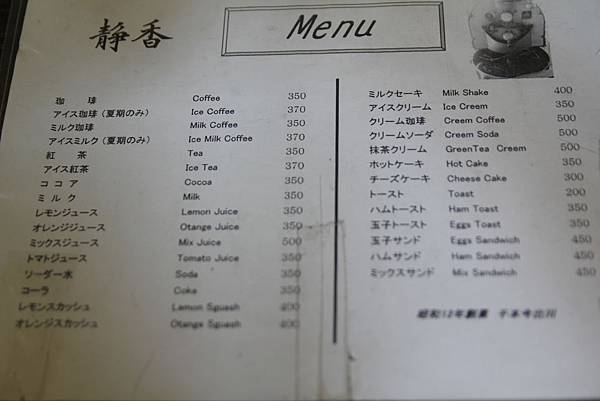 静香
Menu
珈 琲 Coffee 350
アイス珈琲(夏期のみ) Ice Coffee 370
ミルク珈琲 Milk Coffee 350
アイスミルク(夏期のみ) Ice Milk Coffee 370
紅 茶 Tea 350
アイス紅茶 Ice Tea 370
コ コ ア Cocoa 350
ミ ル ク Milk 350
レモンジュース Lemon Juice 350
オレンジジュース Otange Juice 350
ミックスジュース Mix Juice 500
トマトジュース Tomato Juice 350
ソーダー水 Soda 350
コーラ Coka 350
レモンスカッシュ Lemon Sguash 400
オレンジスカッシュ Otange Sguash 400
ミルクセーキ Milk Shake 400
アイスクリーム Ice Creem 350
クリーム珈琲 Creem Coffee 500
クリームソーダ Creem Soda 500
抹茶クリーム GreenTea Creem 500
ホットケーキ Hot Cake 350
チーズケーキ Cheese Cake 300
トースト Toast 200
ハムトースト Ham Toast 350
玉子トースト Eggs Toast 350
玉子サンド Eggs Sandwich 450
ハムサンド Ham Sandwich 450
ミックスサンド Mix Sandwich 450
昭和12年創業 千本今出川